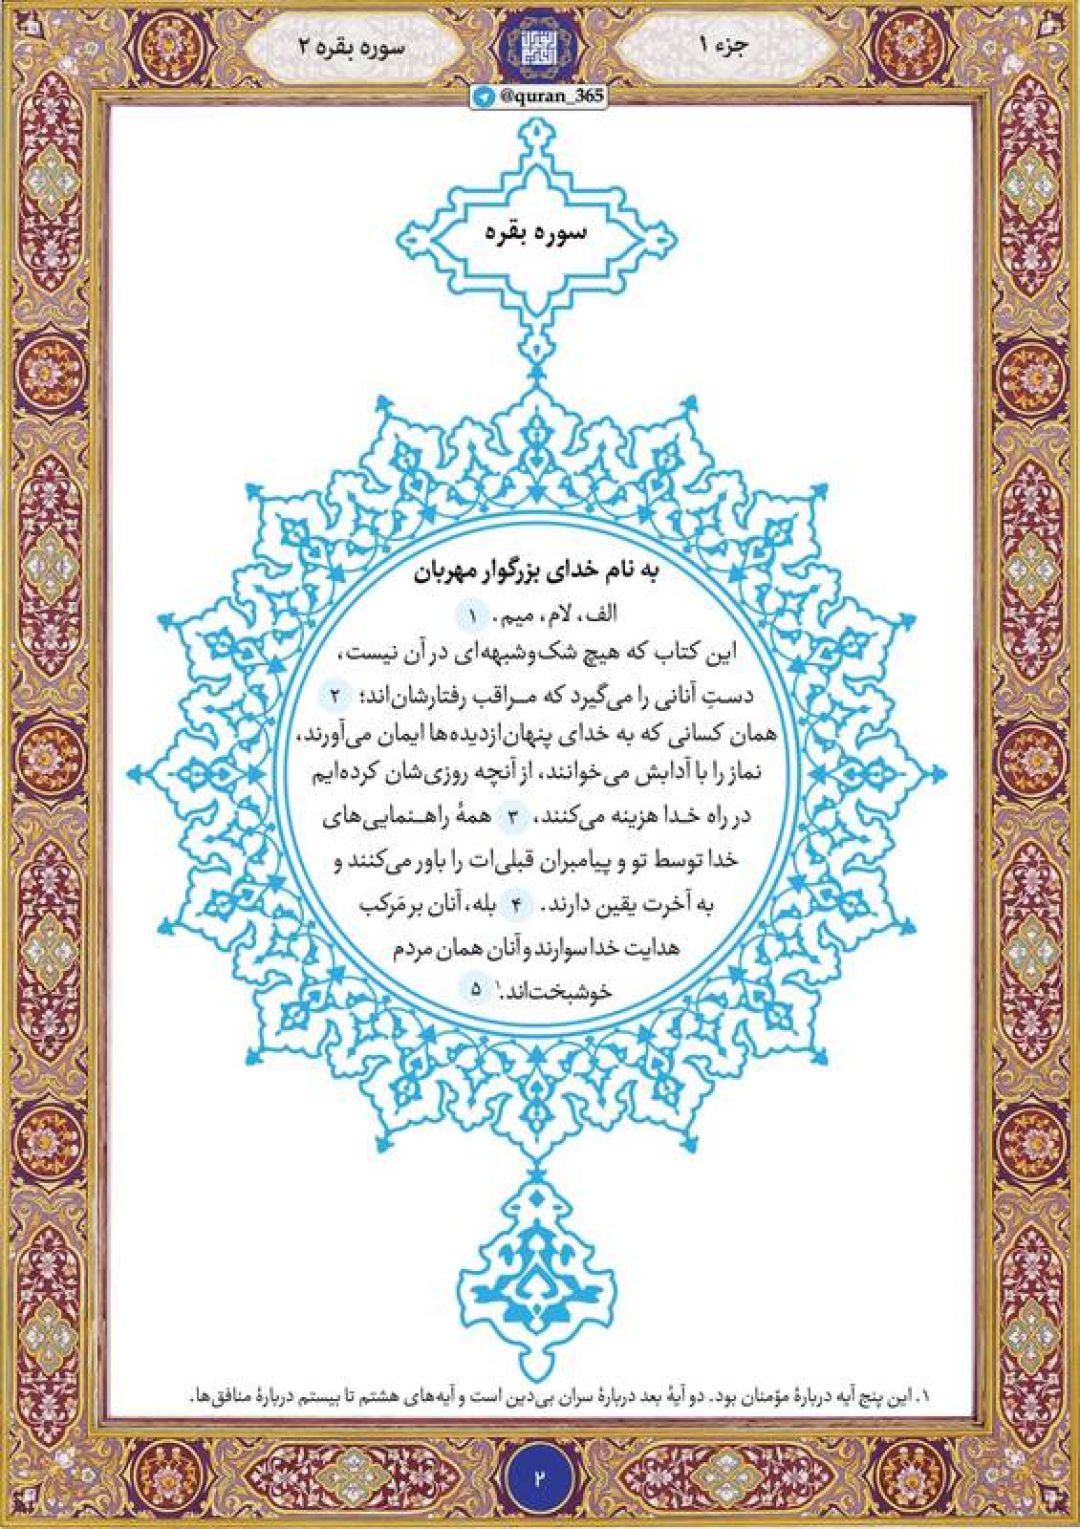 جزء ۱
سوره بقره ۲
@quran_365
سوره بقره
به نام خدای بزرگوار مهربان
الف، لام، میم. ۱
این کتاب که هیچ شک‌وشبهه‌ای در آن نیست،
دستِ آنانی را می‌گیرد که مراقب رفتارشان‌اند؛ ۲
همان کسانی که به خدای پنهان‌ازدیده‌ها ایمان می‌آورند،
نماز را با آدابش می‌خوانند، از آنچه روزی‌شان کرده‌ایم
در راه خدا هزینه می‌کنند، ۳ همهٔ راهنمایی‌های
خدا توسط تو و پیامبران قبلی‌ات را باور می‌کنند و
به آخرت یقین دارند. ۴ بله، آنان بر مَرکب
هدایت خدا سوارند و آنان همان مردم
خوشبخت‌اند.۱ ۵
۱. این پنج آیه دربارهٔ مؤمنان بود. دو آیهٔ بعد دربارهٔ سران بی‌دین است و آیه‌های هشتم تا بیستم دربارهٔ منافق‌ها.
۲